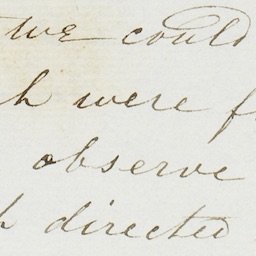 we could
h were f
observe
h directed